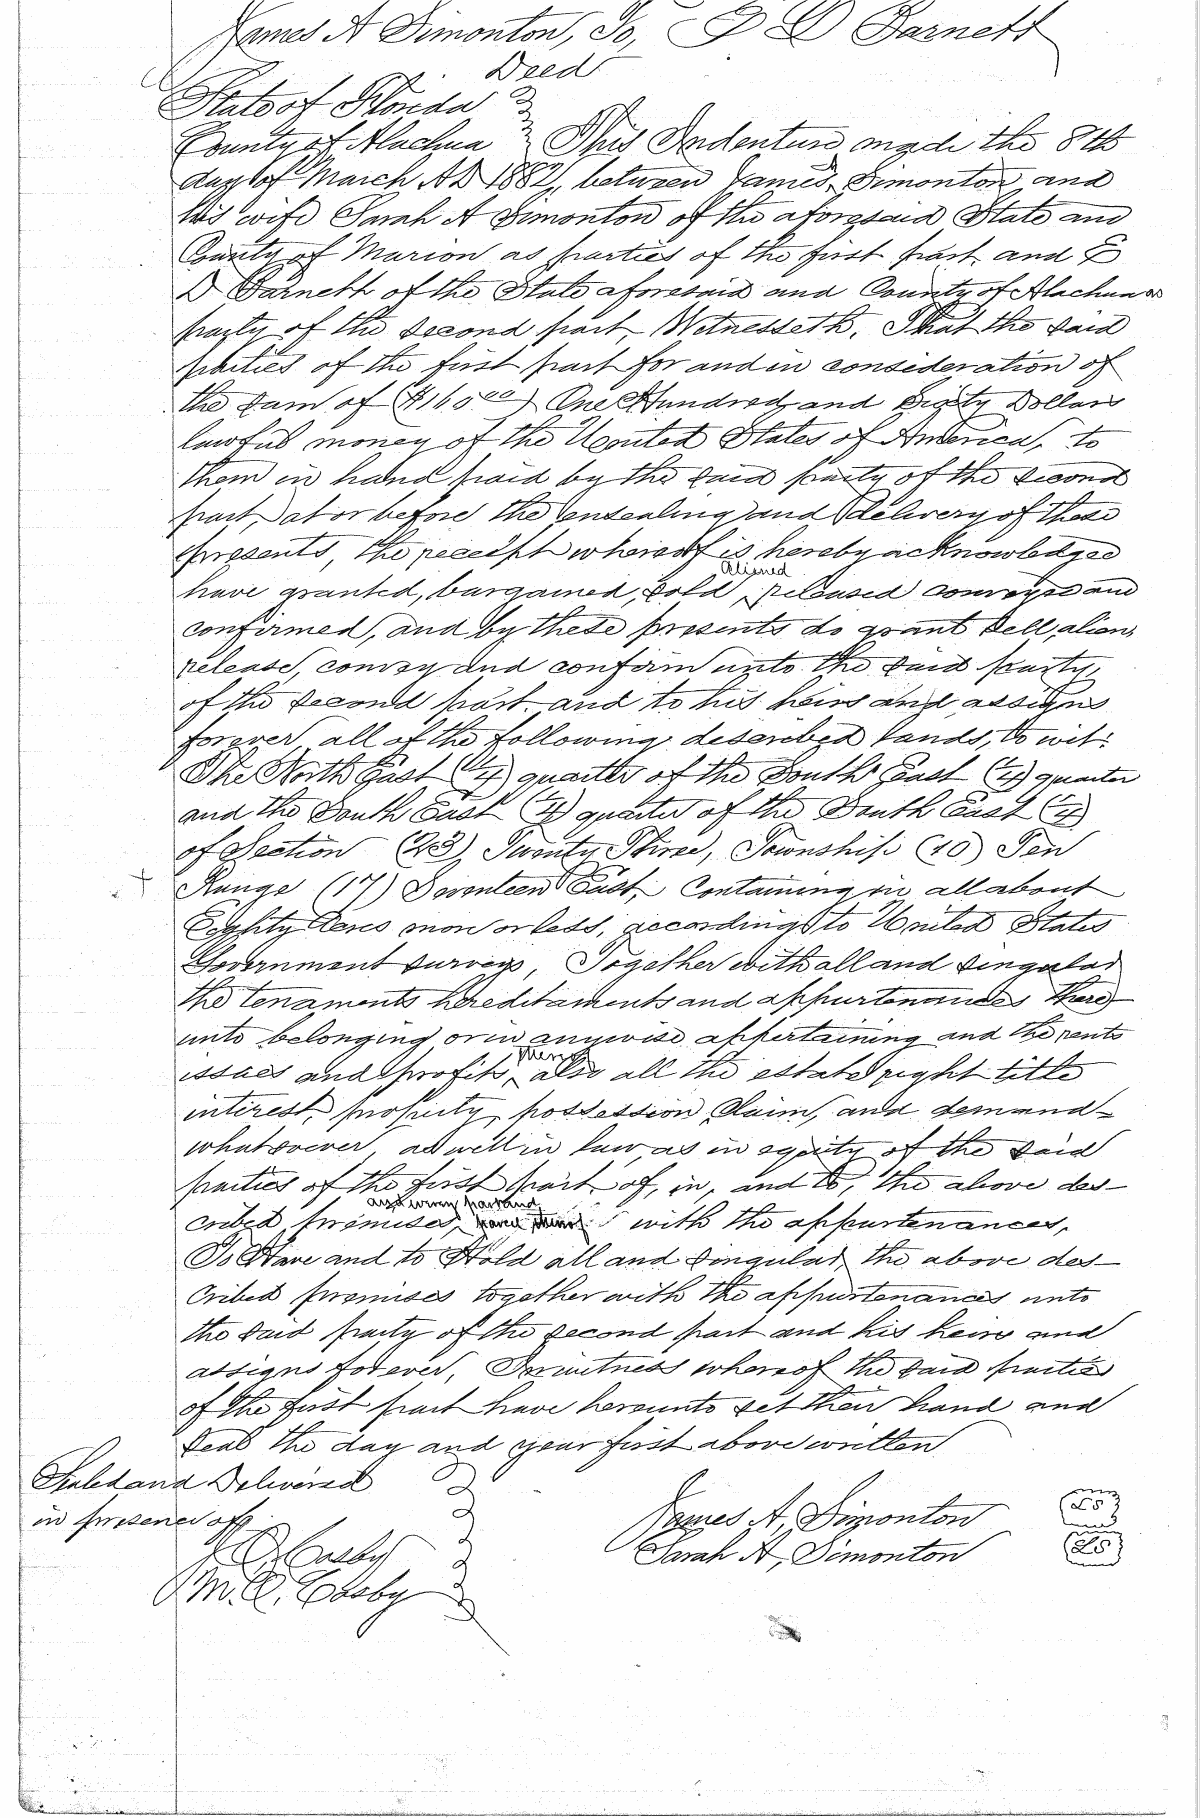 James A Simonton, To, E D Barnett
Deed
State of Florida
County of Alachua This Indenture made the 8th
day of March AD 1882, between James A Simonton and
his wife Sarah A Simonton of the aforesaid State and
County of Marion as parties of the first part, and E
D Barnett of the State aforesaid and County of Alachua as
party of the second part, Witnesseth, That the said
parties of the first part for and in consideration of
the sum of ($160 00) One Hundred and Sixty Dollars
lawful money of the United States of America, to
them in hand paid by the said party of the second
part, at or before the ensealing and delivery of these
presents, the receipt whereof is hereby acknowledged
have granted, bargained, sold, Aliened released conveyed and
confirmed, and by these presents do grant sell, alien,
release, convey and confirm unto the said party,
of the second part, and to his heirs and assigns
forever all of the following described lands, to wit:
The North East (1/4) quarter of the South East (1/4) quarter
and the South East (1/4) quarter of the South East (1/4)
of Section (23) Twenty Three, Township (10) Ten
Range (17) Seventeen East, Containing in all about
Eighty Acres more or less, according to United States
Government surveys, Together with all and singular
the tenaments hereditaments and appurtenances there
unto belonging or in anywise appertaining and the rents
issues and profits thereof also all the estate right title
interest, property, possession Claim, and demand
whatsoever, as well in law, as in equity of the said
parties of the first part, of, in, and to, the above des
cribed premises, and every part and parcel thereof with the appurtenances,
To Have and to Hold all and singular, the above des
cribed premises together with the appurtenances unto
the said party of the second part and his heirs and
assigns forever, In witness whereof the said parties
of the first part have hereunto set their hand and
seal the day and year first above written
Sealed and Delivered
in presence of
Cosby
M. C. Cosby
James A, Simonton LS
Sarah A, Simonton LS